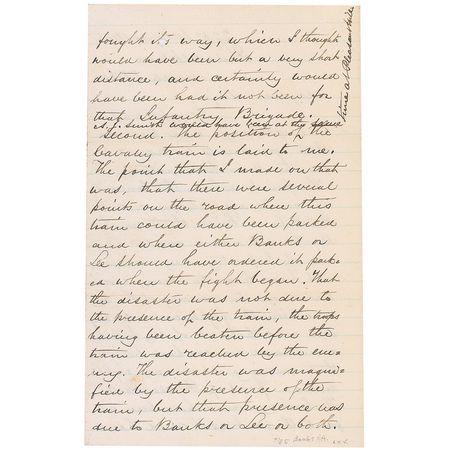 fought it's way, which I thought
would have been but a very short
distance, and certainly would
have been had it not been for
that Infantry Brigade.
A. J. Smith would have been at the same
time at Pleasant Hill
Second. The position of the
Cavalry train is laid to me.
The point that I made on that
was, that there were several
points on the road where this
train could have been parked
and where either Banks or
Lee should have ordered it park-
ed when the fight began. That
the disaster was not due to
the presence of the train, the troops
having been beaten before the
train was reached by the ene-
my. The disaster was magni-
fied by the presence of the
train, but that presence was
due to Banks or Lee or both.